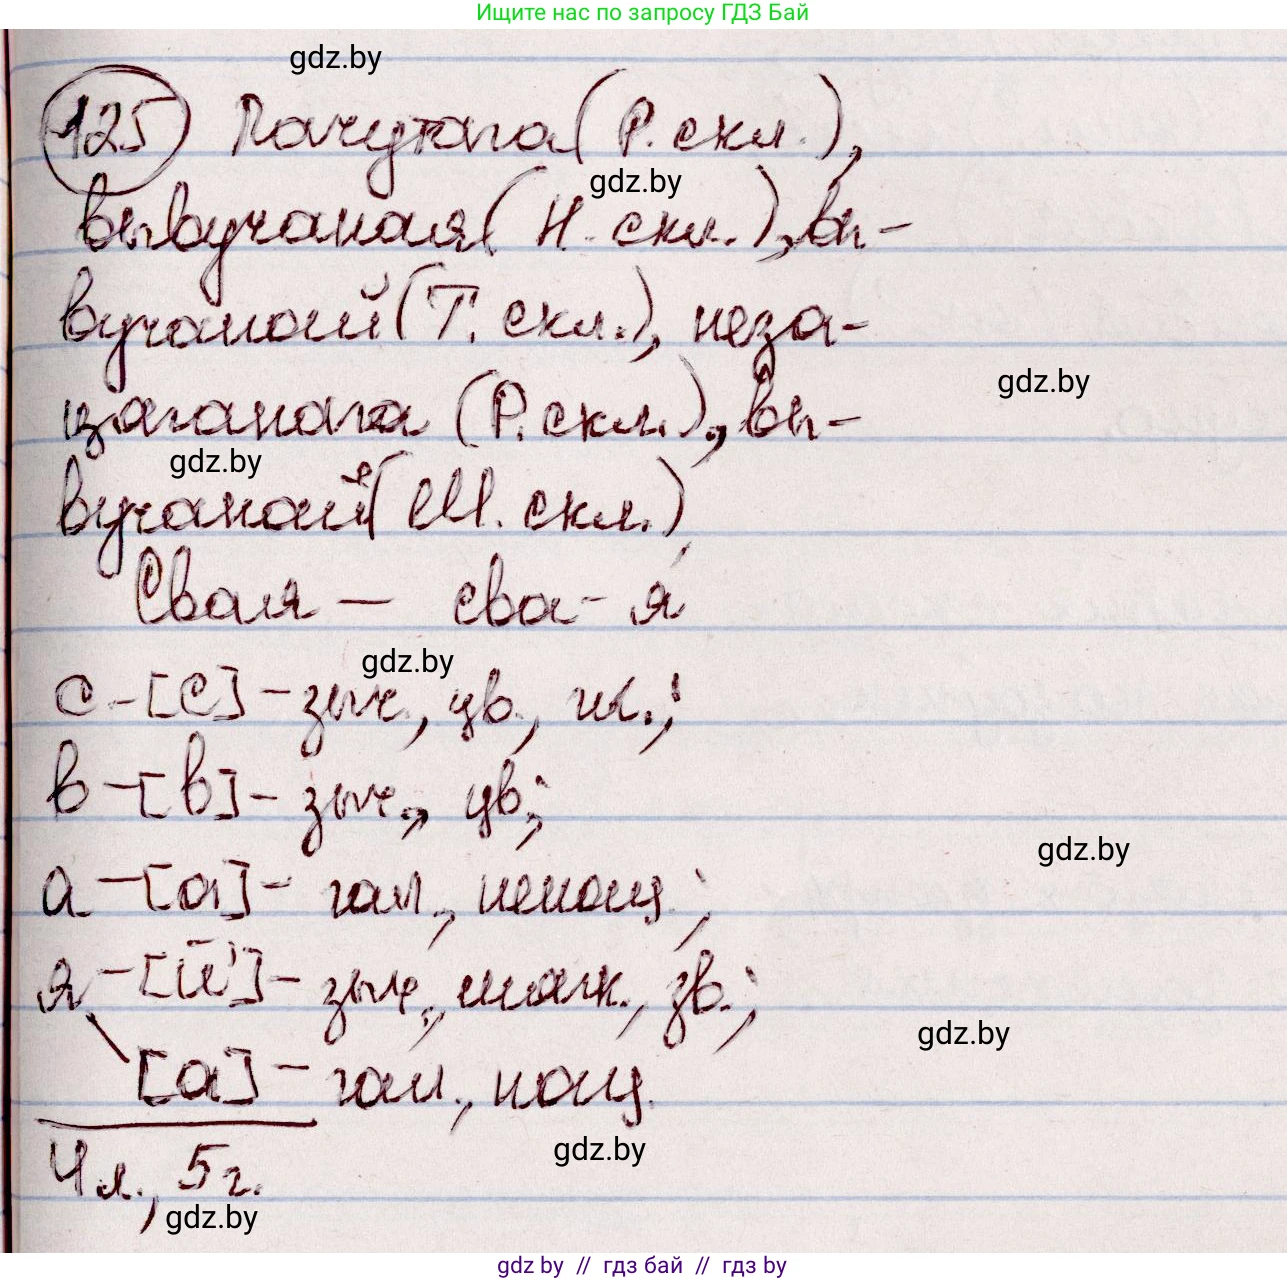 Ищите нас по запросу ГДЗ Бай
gdz.by
125 Пачутага (Р. скл.),
gdz.by
вывучаная (Н. скл.), вы-
вучанай (Т. скл.), неза-
gdz.by
цяганага (Р. скл.), вы-
gdz.by
вучанай (М. скл.)
Свая – сва-я
gdz.by
с – [с] – зыч., цв.,
в – [в] – зыч., цв.;
gdz.by
а – [а] – гал., ненац.;
я – [й'] – зыч., мягк., зв.;
gdz.by
[а] – гал., нац.
gdz.by
4 л., 5 г.
gdz.by
gdz by // гдз бай // гдз by